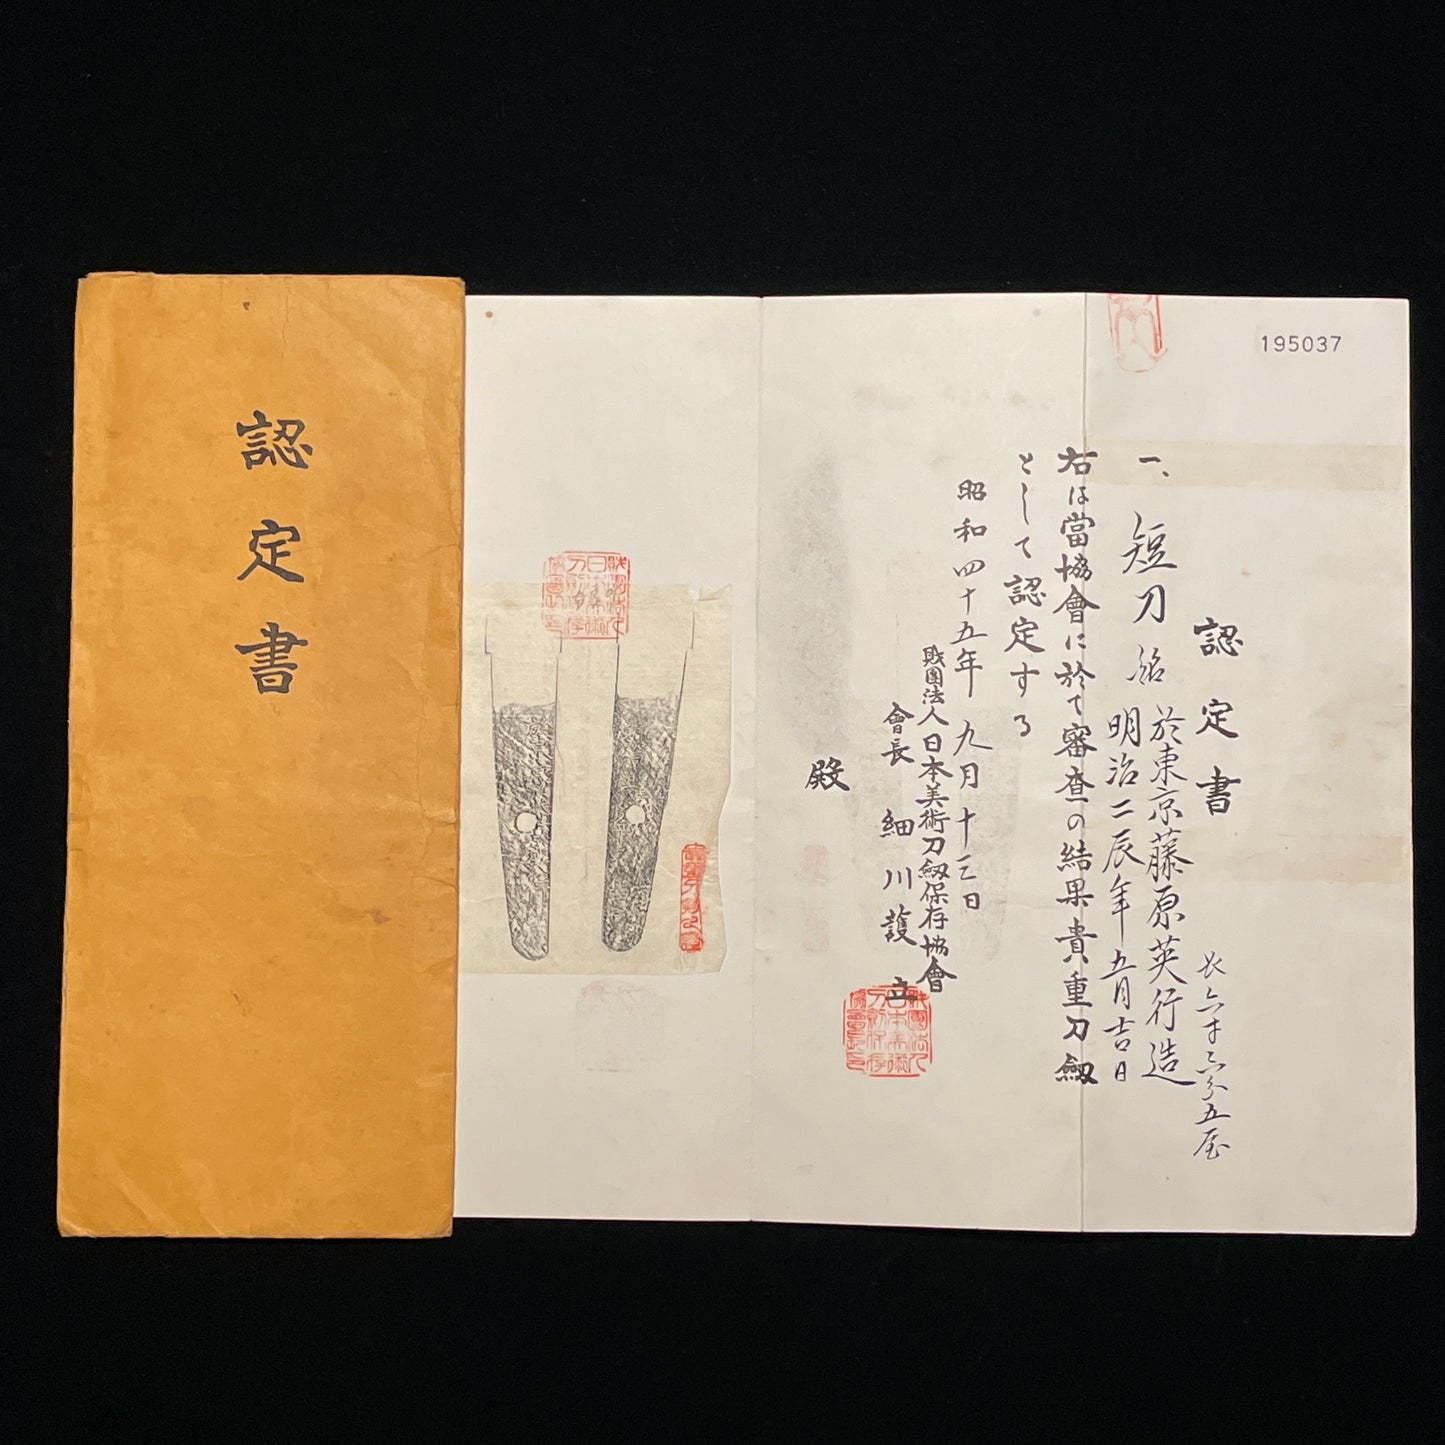 認定書
195037
認定書
一、短刀 銘 於東京藤原英行造
明治二辰年五月吉日
長六寸六分五厘
右は當協會に於て審査の結果貴重刀劔
として認定する
昭和四十五年九月十三日
財團法人日本美術刀劔保存協會
會長 細川護立
殿